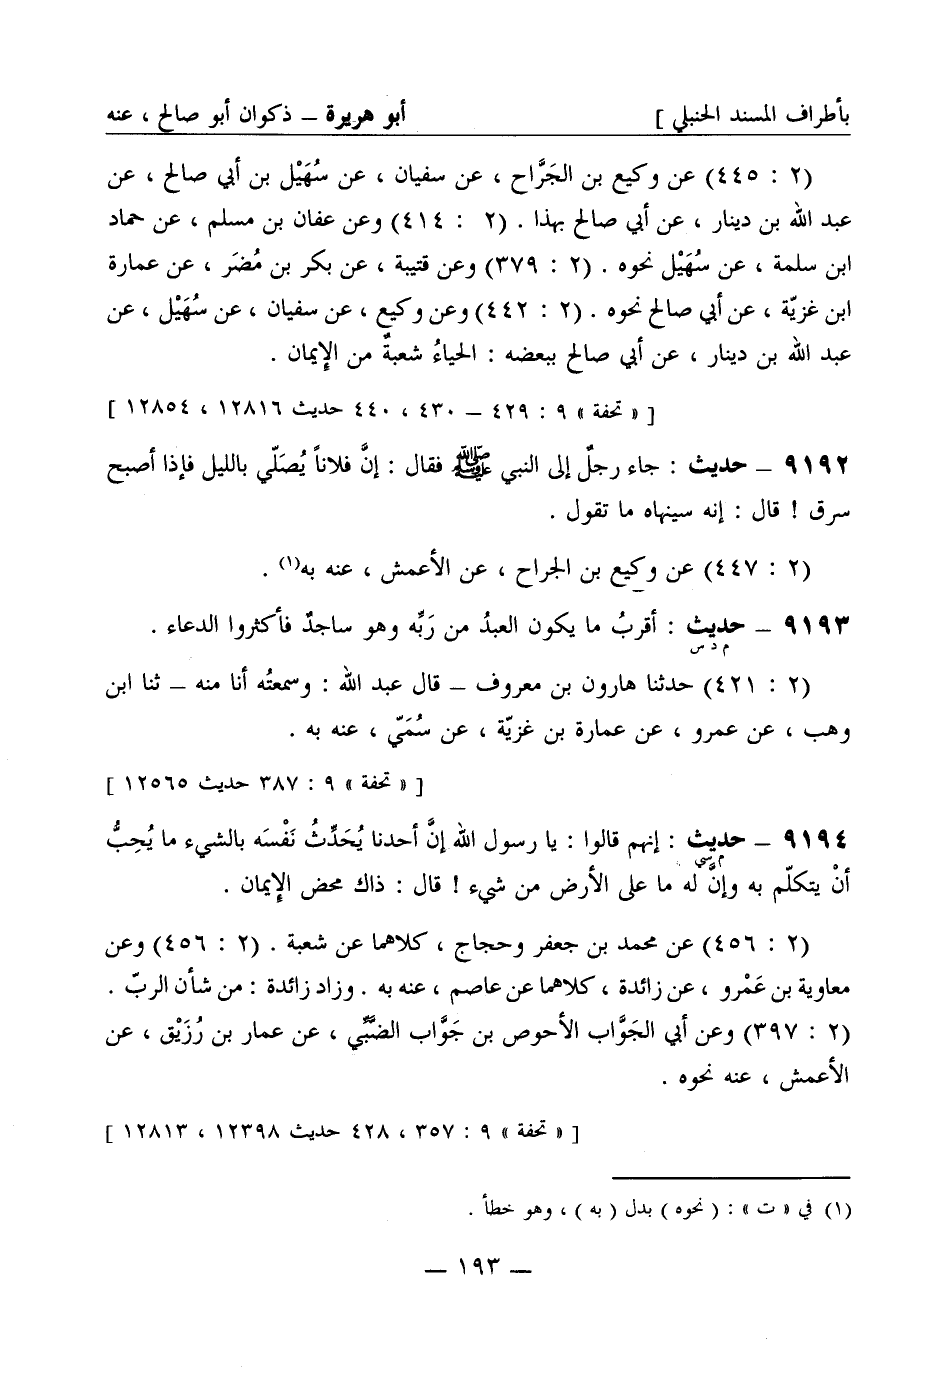 بأطراف المسند الحنبلي ] أبو هريرة ـ ذكوان أبو صالح ، عنه
(٢ : ٤٤٥) عن وكيع بن الجَرَّاح ، عن سفيان ، عن سُهَيْل بن أبي صالح ، عن
عبد الله بن دينار ، عن أبي صالح بهذا . (٢ : ٤١٤) وعن عفان بن مسلم ، عن حماد
ابن سلمة ، عن سُهَيْل نحوه . (٢ : ٣٧٩) وعن قتيبة ، عن بكر بن مُضَر ، عن عمارة
ابن غزيّة ، عن أبي صالح نحوه . (٢ : ٤٤٢) وعن وكيع ، عن سفيان ، عن سُهَيْل ، عن
عبد الله بن دينار ، عن أبي صالح ببعضه : الحياءُ شعبةٌ من الإيمان .
[ « تحفة » ٩ : ٤٢٩ ـ ٤٣٠ ، ٤٤٠ حديث ١٢٨١٦ ، ١٢٨٥٤ ]
٩١٩٢ ـ حديث : جاء رجلٌ إلى النبي ﷺ فقال : إنَّ فلاناً يُصَلّي بالليل فإذا أصبح
سرق ! قال : إنه سينهاه ما تقول .
(٢ : ٤٤٧) عن وكيع بن الجراح ، عن الأعمش ، عنه به(١) .
٩١٩٣ ـ حديث : أقربُ ما يكون العبدُ من رَبِّه وهو ساجدٌ فأكثروا الدعاء .
م د س
(٢ : ٤٢١) حدثنا هارون بن معروف ـ قال عبد الله : وسمعتُه أنا منه ـ ثنا ابن
وهب ، عن عمرو ، عن عمارة بن غزيّة ، عن سُمَيّ ، عنه به .
[ « تحفة » ٩ : ٣٨٧ حديث ١٢٥٦٥ ]
٩١٩٤ ـ حديث : إنهم قالوا : يا رسول الله إنَّ أحدنا يُحَدِّثُ نَفْسَه بالشيء ما يُحِبُّ
م سي
أنْ يتكلّم به وإنَّ له ما على الأرض من شيء ! قال : ذاك محض الإيمان .
(٢ : ٤٥٦) عن محمد بن جعفر وحجاج ، كلاهما عن شعبة . (٢ : ٤٥٦) وعن
معاوية بن عَمْرو ، عن زائدة ، كلاهما عن عاصم ، عنه به . وزاد زائدة : من شأن الربّ .
(٢ : ٣٩٧) وعن أبي الجَوَّاب الأحوص بن جَوَّاب الضَّبِّي ، عن عمار بن رُزَيْق ، عن
الأعمش ، عنه نحوه .
[ « تحفة » ٩ : ٣٥٧ ، ٤٢٨ حديث ١٢٣٩٨ ، ١٢٨١٣ ]
(١) في « ت » : ( نحوه ) بدل ( به ) ، وهو خطأ .
ـ ١٩٣ ـ